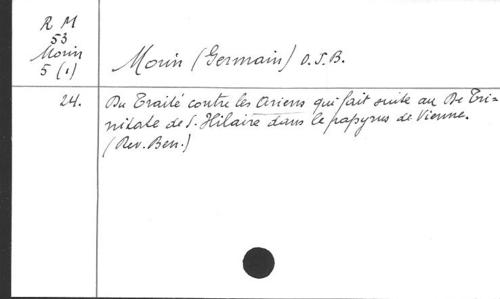 R M
53
Morin
5 (1)
Morin (Germain) O.S.B.
24.
Du Traité contre les Ariens qui fait suite au De Tri=
nitate de S. Hilaire dans le papyrus de Vienne.
(Rev. Ben.)